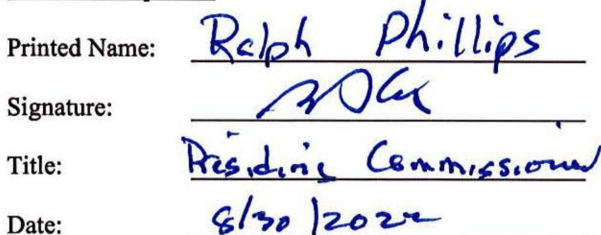 Printed Name: Ralph Phillips
Signature:
Title: Presiding Commissioner
Date: 8/30/2022